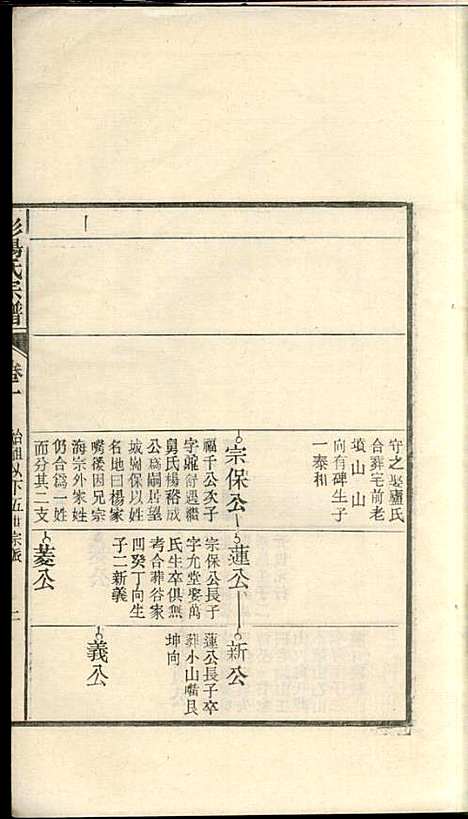 守之娶廬氏
合葬宅前老
墳山山
向有碑生子
一泰和
宗保公
福千公次子
字龍得過繼
舅氏楊裕成
公爲嗣居望
城崗保以姓
名地曰楊家
嘴後因兄宗
海宗外家姓
仍合爲一姓
而分其二支
蓮公
宗保公長子
字尤堂娶萬
氏生卒俱無
考合葬谷家
凹癸丁向生
子二新義
菱公
新公
蓮公長子卒
葬小山嘴艮
坤向
義公
彭楊氏宗譜
卷一
始祖以下五世宗派